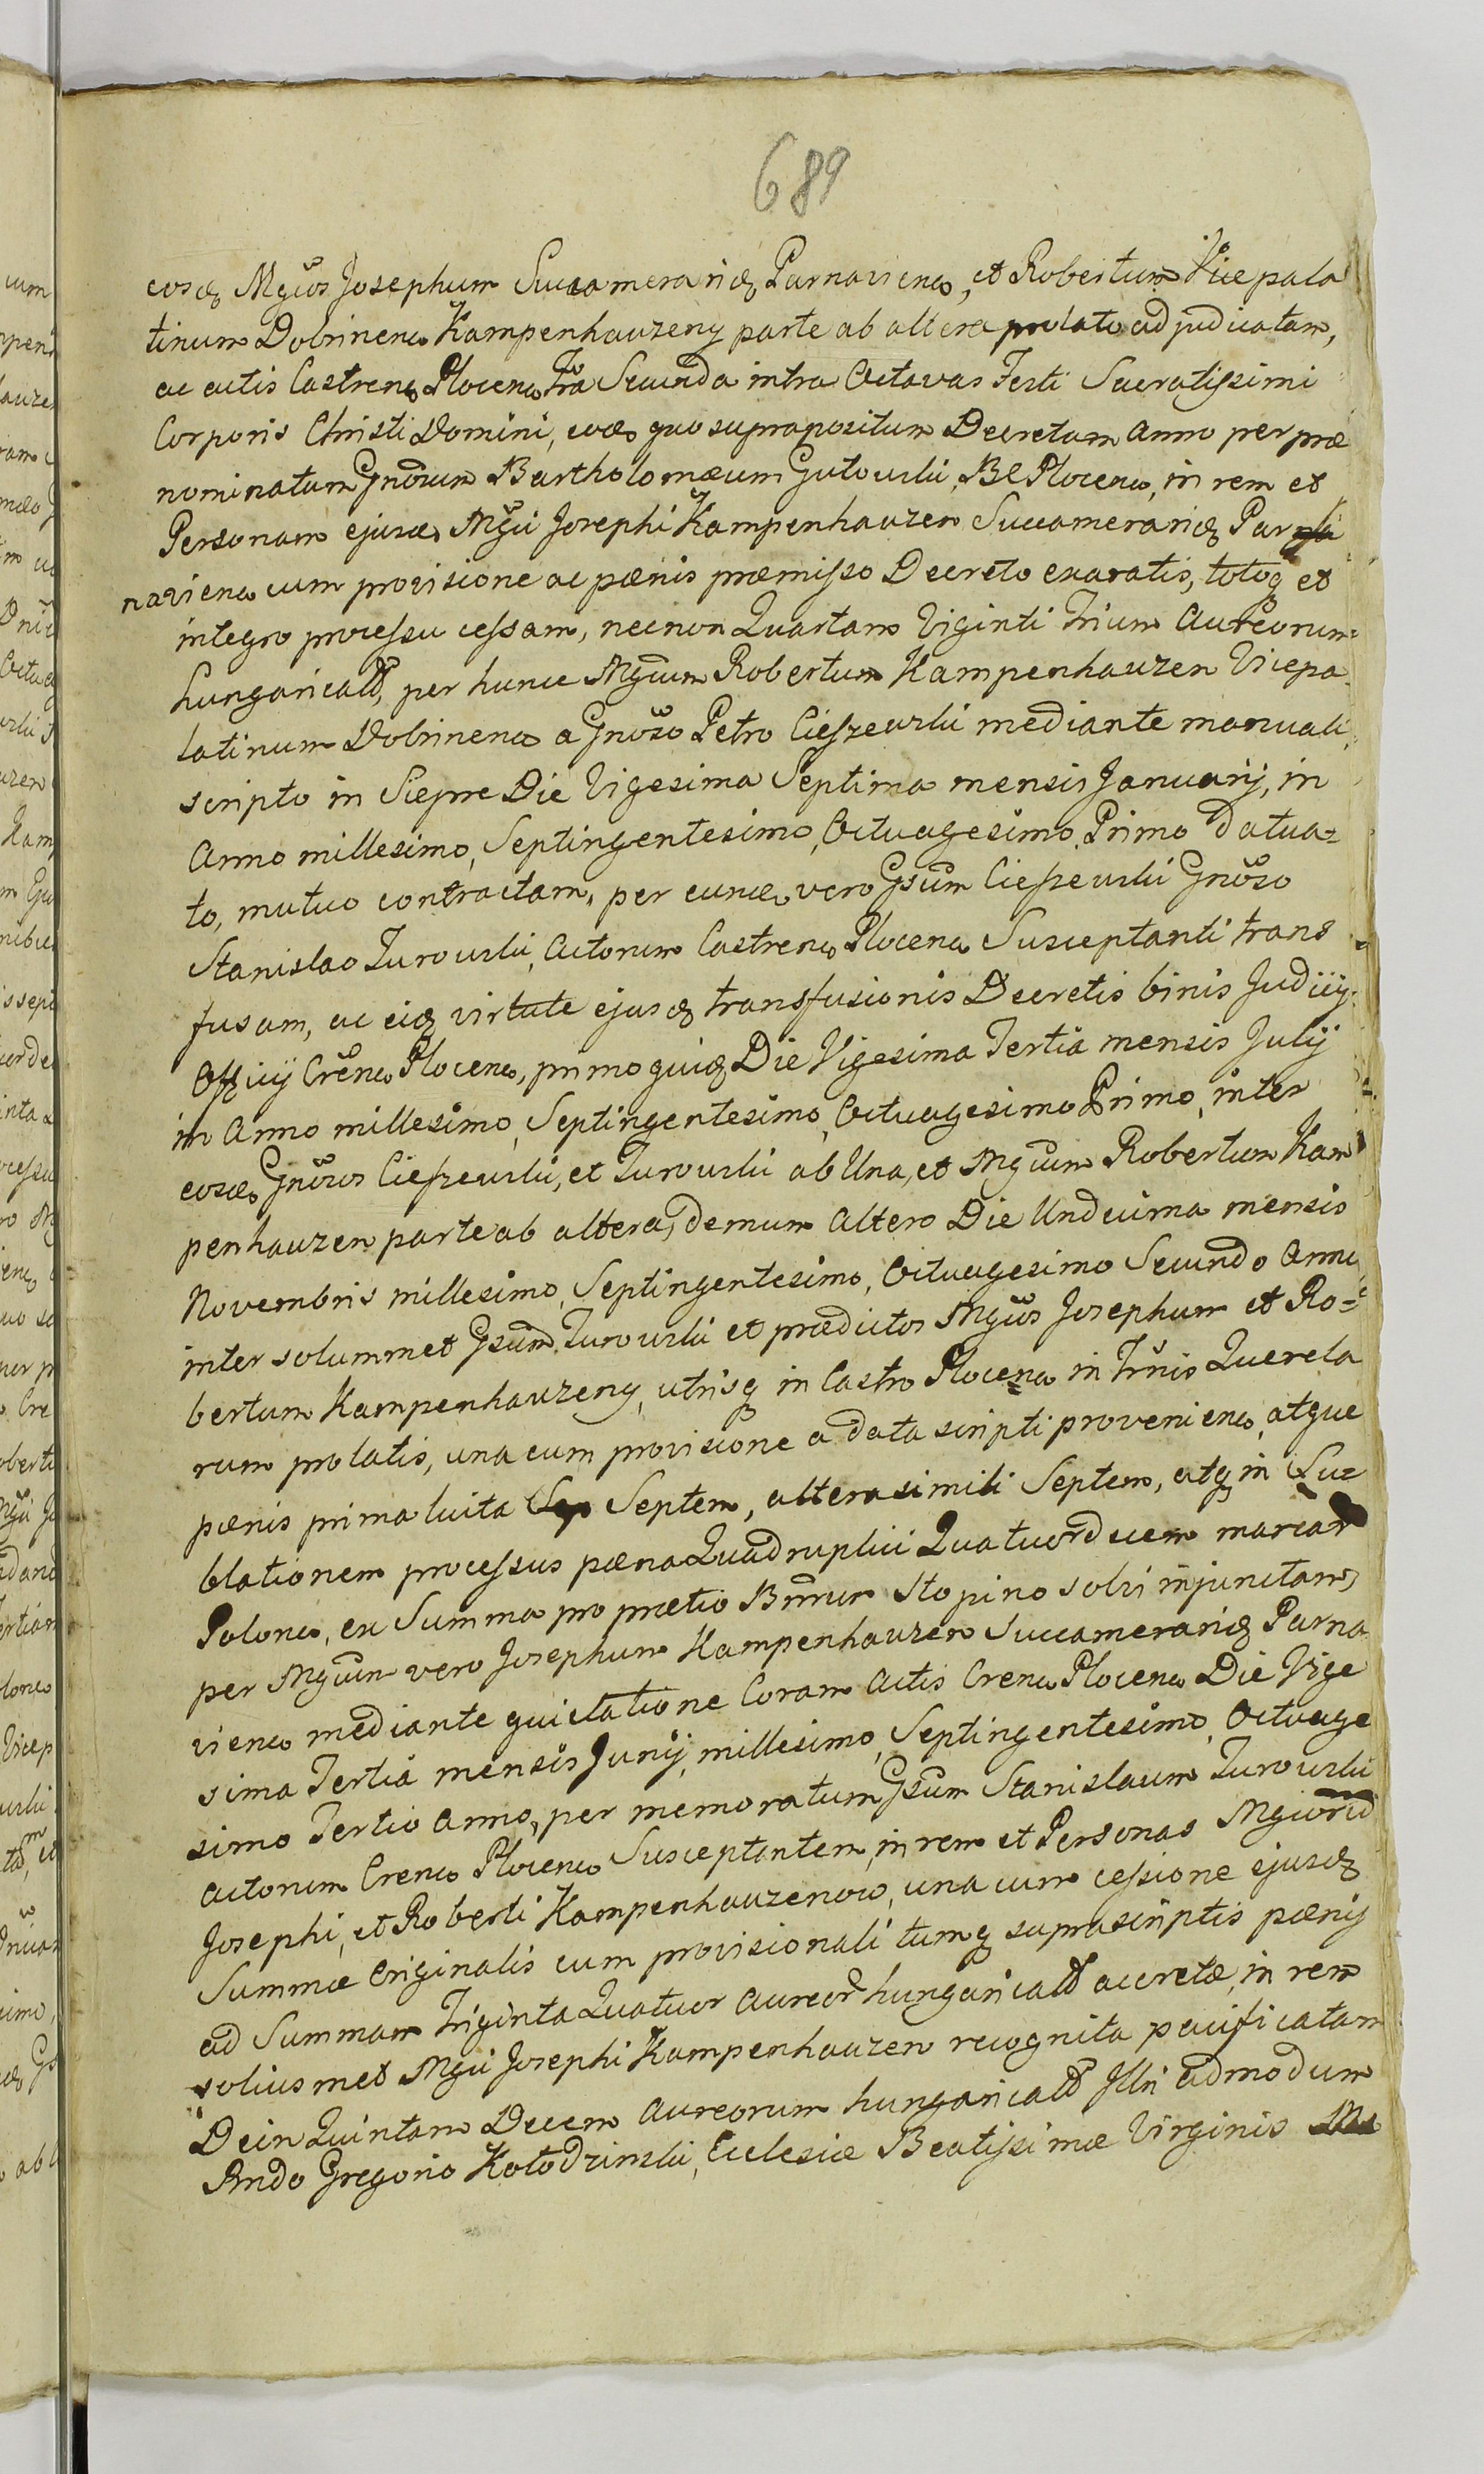 689
eosdẽ Mgcos Josephum Succamerariũ Parnaviens, et Robertum Vicepala
tinum Dobrinens Kampenhauzeny parte ab altera prolato adjudicatam,
ac actis Castrens Plocens Fra Secunda intra Octavas Festi Sacratissimi
Corporis Christi Domini, eod quo suprapositum Decretum Anno per præ
nominatum Gnorum Bartholomæum Gutowski, BC Plocens, in rem et
Personam ejusd Mgci Josephi Kampenhauzen Succamerariũ Par
naviens cum provisione ac pænis præmisso Decreto exaratis, totoq et
integro processu cessam, necnon Quartam Viginti Trium Aureorum
hungaricald, per hunc Mgcum Robertum Kampenhauzen Vicepa
latinum Dobrinens a Gnoso Petro Cieszewski mediante manuali
scripto in Sierpc Die Vigesima Septima mensis Januarij, in
Anno millesimo, Septingentesimo, Octuagesimo Primo datua=
to, mutuo contractam, per eund vero Gsum Cieszewski Gnoso
Stanislao Turowski, Actorum Castrens Plocens Susceptanti trans
fusam, ac eid virtute ejusd transfusionis Decretis binis Judicij
Officij Crens Plocens, primo quid Die Vigesima Tertia mensis Julij
in Anno millesimo, Septingentesimo, Octuagesimo Primo, inter
eosd Gnosos Cieszewski, et Turowski ab Una, et Mgcum Robertum Kam
penhauzen parte ab altera, demum altero Die Undecima mensis
Novembris millesimo, Septingentesimo, Octuagesimo Secundo Anno,
inter solummet Gsum Turowski et prædictos Mgcos Josephum et Ro=
bertum Kampenhauzeny, utrisq in Castro Plocens in Trnis Querela
rum prolatis, una cum provisione a data scripti proveniens, atque
pænis prima luita Septem, altera simili Septem, atq in Su
blationem processus pæna Quadruplici Quatuordecem marcar
Polones, ex Summa pro prætio Bnnur Stopino solvi injunctam,
per Mgcum vero Josephum Kampenhauzen Succamerariũ Parna
viens mediante quietatione Coram Actis Crens Plocens Die Vige
sima Tertia mensis Junij, millesimo, Septingentesimo, Octuage
simo Tertio Anno, per memoratum Gsum Stanislaum Turowski
Actorum Crens Plocens Susceptantem, in rem et Personas Mgcorũ
Josephi, et Roberti Kampenhauzenow, una cum cessione ejusd
Summæ Originalis cum provisionali tumq suprascriptis pænis
ad Summam Triginta Quatuor Aureor hungaricald accretæ, in rem
soliusmet Mgci Josephi Kampenhauzen recognita pacificatam
Dein Quintam Decem Aureorum hungaricald Illri Admodum
Rndo Gregorio Kołodzinski, Ecclesiæ Beatissimæ Virginis